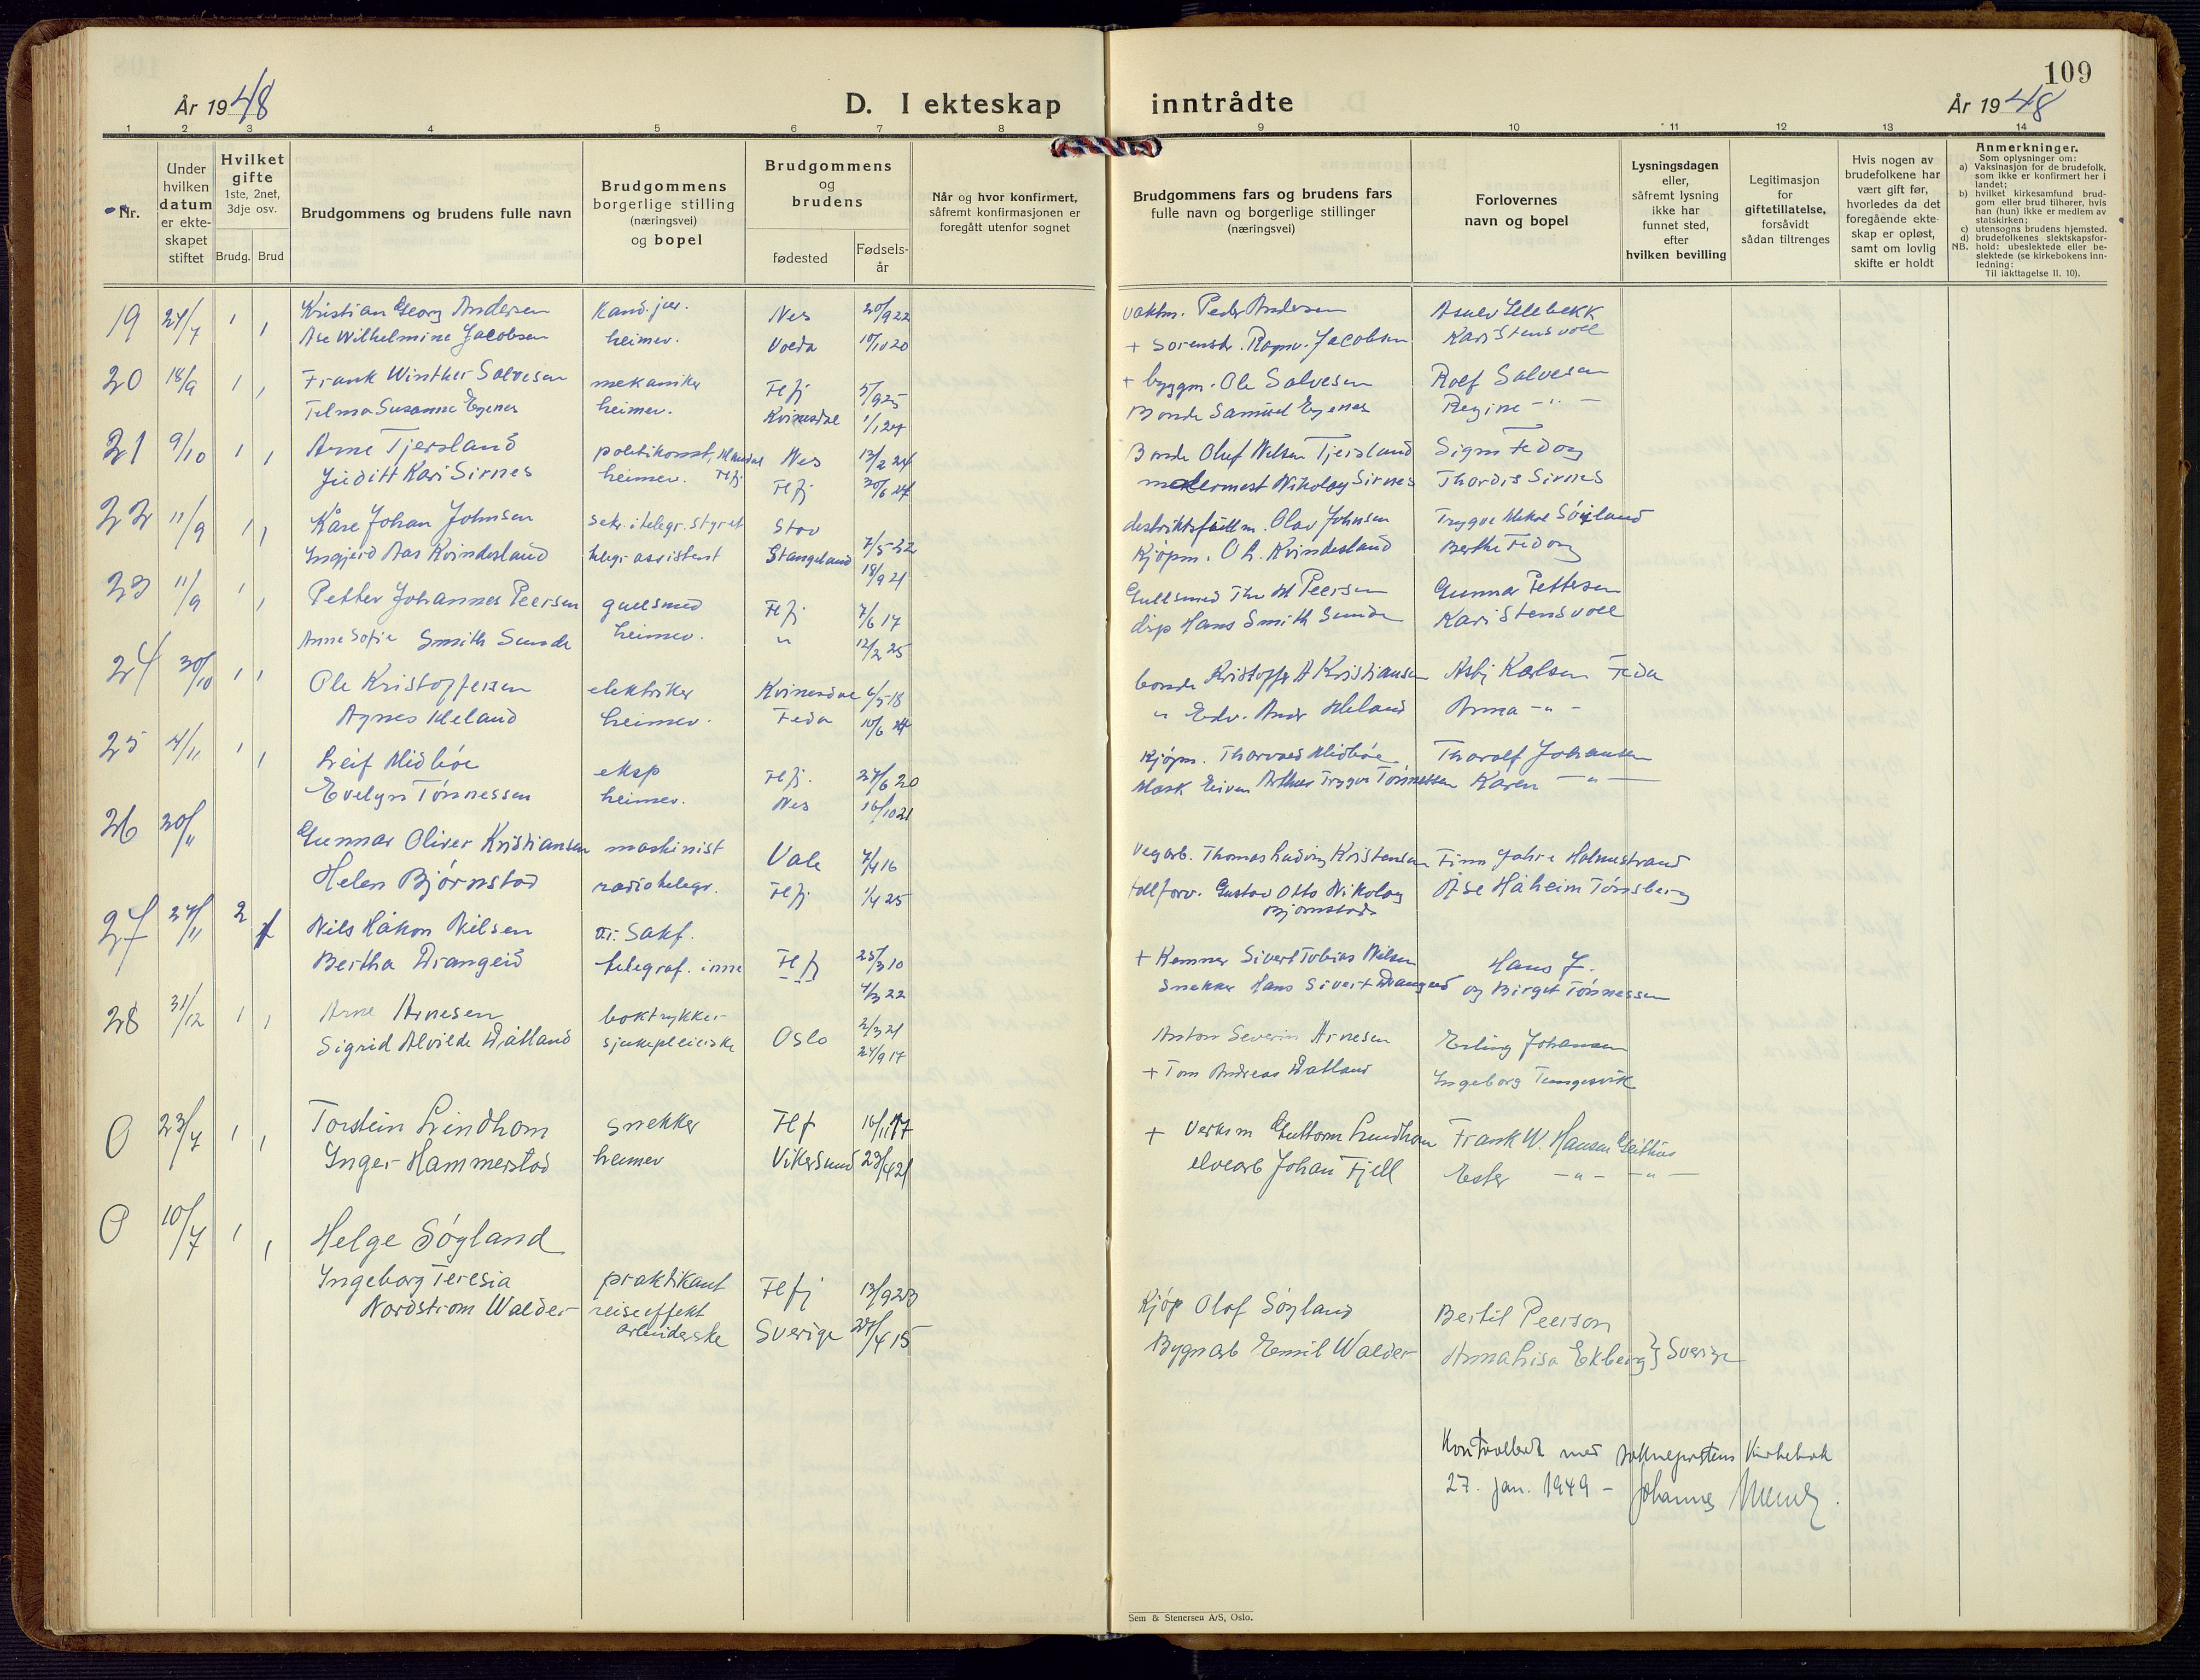 109
År 1948
D. I ekteskap inntrådte
År 1948
1 2 3 4 5 6 7 8 9 10 11 12 13 14
Nr.
Under hvilken datum er ekteskapet stiftet
Hvilket gifte 1ste, 2net, 3dje osv.
Brudg. Brud
Brudgommens og brudens fulle navn
Brudgommens borgerlige stilling (næringsvei) og bopel
Brudgommens og brudens
fødested
Fødselsår
Når og hvor konfirmert, såfremt konfirmasjonen er foregått utenfor sognet
Brudgommens fars og brudens fars fulle navn og borgerlige stillinger (næringsvei)
Forlovernes navn og bopel
Lysningsdagen eller, såfremt lysning ikke har funnet sted, efter hvilken bevilling
Legitimasjon for giftetillatelse, forsåvidt sådan tiltrenges
Hvis nogen av brudefolkene har vært gift før, hvorledes da det foregående ekteskap er opløst, samt om lovlig skifte er holdt
Anmerkninger.
Som oplysninger om:
a) Vaksinasjon for de brudefolk, som ikke er konfirmert her i landet;
b) hvilket kirkesamfund brudgom eller brud tilhører, hvis han (hun) ikke er medlem av statskirken;
c) utensogns brudens hjemsted.
d) brudefolkenes slektskapsforhold: ubeslektede eller beslektede (se kirkebokens innledning:
NB.
Til iakttagelse II. 10).
19 24/7 1 1 Kristian Georg Andersen Kand. jur. Nes 20/9 22 vaktm. Peder Andersen
Åse Wilhelmine Jacobsen heimev. Volda 10/10 20 + Sorenskr. Ragnv. Jacobsen Kari Stensvoll
20 18/9 1 1 Frank Winther Salvesen mekaniker Flfj 5/9 25 + byggm. Ole Salvesen Rolf Salvesen
Telma Susanne Egenes heimev. Kvinesdal 1/1 24 Bonde Samuel Egenes Regine -"-
21 9/10 1 1 Arne Tjersland politikonst, Mandal Nes 13/2 24 Bonde Oluf Nilsen Tjersland Sigm Fedog
Juditt Kari Sirnes heimev. Flfj Flfj 30/6 24 malermest Nikolay Sirnes Thordis Sirnes
22 11/9 1 1 Kåre Johan Johnsen Sekr. i telegr. styret Stov 7/5 22 Olav Johnsen Trygve Søyland
Ingjerd Aas Kvindesland telegr assistent Stangeland 18/9 21 Kjøpm. O L. Kvindesland Berthe Fedog
23 11/9 1 1 Petter Johannes Peersen gullsmed Flfj 7/6 17 Gullsmed Thv M Peersen Gunnar Pettersen
Anne Sofie Smith Sunde heimev. " 12/2 25 disp Hans Smith Sunde Kari Stensvoll
24 30/10 1 1 Ole Kristoffersen elektriker Kvinesdal 6/5 18 bonde Kristoffer A Kristiansen Asbj Karlsen Feda
Agnes Meland heimev. Feda 10/6 24 " Edv. Andr Meland Anna -"-
25 4/11 1 1 Leif Midbøe eksp Flfj. 27/6 20 Kjøpm. Thorvald Midbøe Thorolf Johansen
Evelyn Tønnessen heimev. Nes 16/10 21 Mask Arthur Trygve Tønnessen Karen -"-
26 20/11 Gunnar Oliver Kristiansen maskinist Vale 7/4 16 Vegarb. Thomas Ludvig Kristensen Finn Jahre Holmestrand
Helen Bjørnstad radiotelegr. Flfj 1/4 25 tollforv. Gustav Otto Nikolay Bjørnstad Åse Håheim Tønsberg
27 27/11 2 1 Nils Håkon Nilsen o.r. sakf. Flfj 25/3 10 + Kemner Sivert Tobias Nilsen Hans J.
Bertha Drangeid telegraf. inne 4/3 22 Snekker Hans Sivert Drangeid og Birget Tønnessen
28 31/12 1 1 Arne Arnesen boktrykker Oslo 2/3 21 Anton Severin Arnesen Erling Johansen
Sigrid Alvilde Dåtland sjukepleierske 24/9 17 + Tom Andreas Datland Ingeborg Tungesvik
0 23/7 1 1 Torstein Lindhom snekker Flf 16/11 17 + Verksm Guttorm Lindhom Frank W. Hansen Geithus
Inger Hammerstad heimev Vikersund 23/4 21 elvearb Johan Fjell Ester -"- -"-
0 10/7 1 1 Helge Søyland
Ingeborg Teresia praktikant Flfj 13/9 23 Kjøp Olaf Søyland Bertil Peerson
Nordstrom Walder reiseeffekt arbeiderske Sverige 27/4 15 Bygnarb Emil Walder Anna Lisa Ekberg } Sverige
Kontrollert med sokneprestens kirkebok
27. jan. 1949 – Johannes
Sem & Stenersen A/S, Oslo.